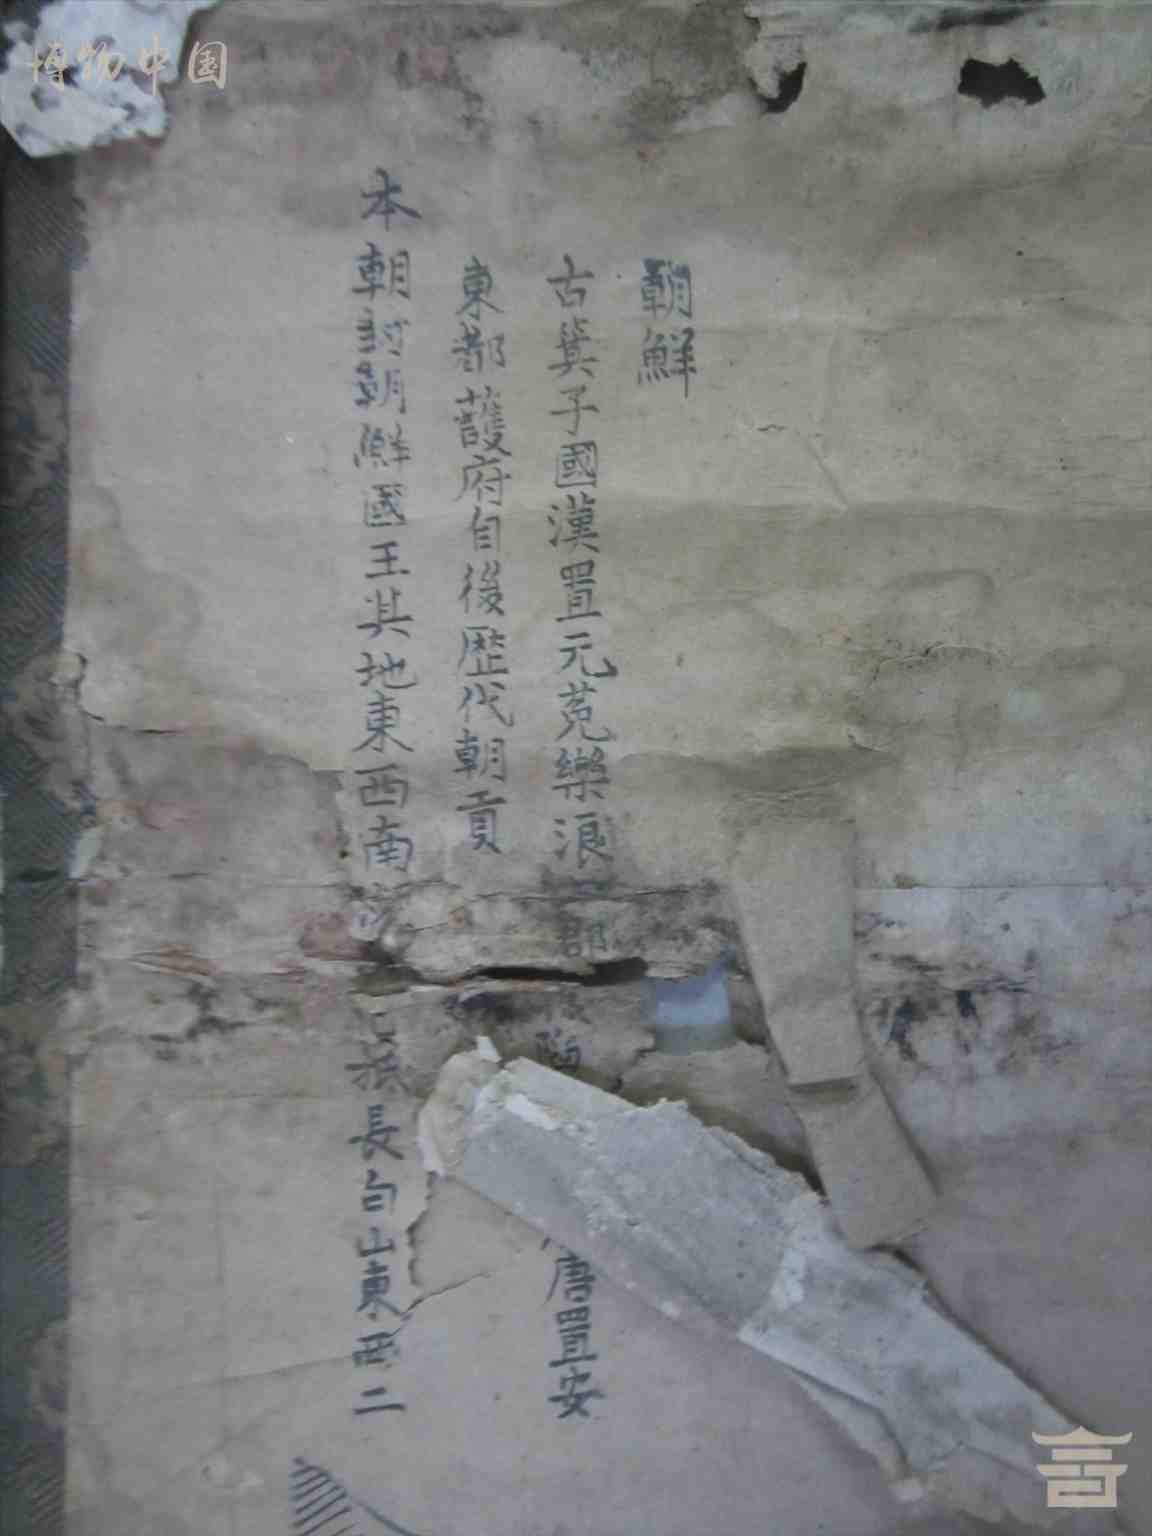 博物中国
朝鮮
古箕子國漢置元菟樂浪二郡唐置安
東都護府自後歷代朝貢
本朝封朝鮮國王其地東西南長白山東西二